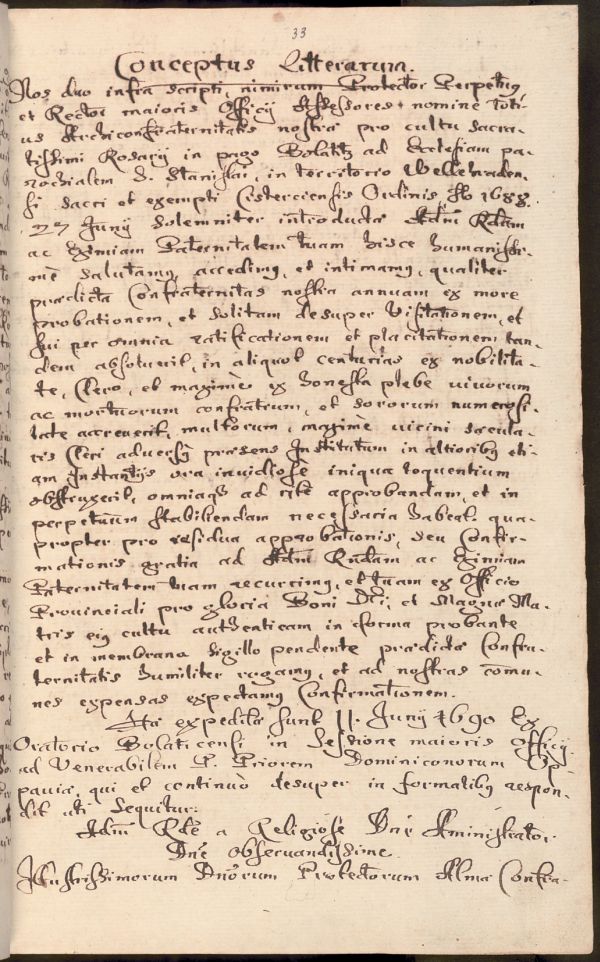 33
Conceptus Litterarum.
Nos duo infra scripti, nimirum Protector Perpetuus,
et Rector maioris Officij Assessores nomine toti-
us Archiconfraternitatis nostræ pro cultu sacra-
tissimi Rosarij in pago Bolatitz ad Ecclesiam pa-
rochialem S. Stanislai, in territorio Wellehraden-
si sacri et exempti Cisterciensis Ordinis Ao 1688.
27 Junij solemniter introductæ Adm Rdam
ac Eximiam Paternitatem tuam hisce humanissi-
me salutamus, accedimus, et intimamus, qualiter
prædicta Confraternitas nostra annuam ex more
probationem, et solitam desuper Visitationem, et
sui per omnia ratificationem et placitationem tan-
dem absoluit, in aliquot centurias ex nobilita-
te, Clero, et maximè ex honesta plebe viuorum
ac mortuorum confratrum, et sororum numerosi-
tate accreuerit, multorum, maxime vicini sæcula-
ris Cleri adversus præsens Institutum in altioribus eti-
am Instantijs ora inuidiose iniqua loquentium
obstruxerit, omniaque ad rite approbandam, et in
perpetuum stabiliendam necessaria habeat. qua-
propter pro residua approbationis, seu Confir-
mationis gratia ad Adm Rndam ac Eximiam
Paternitatem tuam recurrimus, et tuam ex Officio
Prouinciali pro gloria Boni Dei, et Magnæ Ma-
tris eius cultu authenticam in forma probante
et in membrana sigillo pendente prædictæ Confra-
ternitatis humiliter rogamus, et ad nostras comu-
nes expensas expectamus Confirmationem.
Ita expedita sunt 11. Junij 1690 Ex
Oratorio Bolaticensi in Sessione maioris Officij.
ad Venerabilem P. Priorem Dominicanorum Op-
pauiæ, qui et continuò desuper in formalibus respon-
dit uti sequitur.
Adm Rde a Religiose Dne Administrator
Dne Obseruandissime.
Illustrissimorum Dnorum Protectorum Almæ Confra-